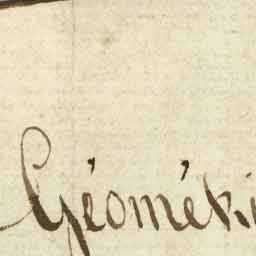 Géométri